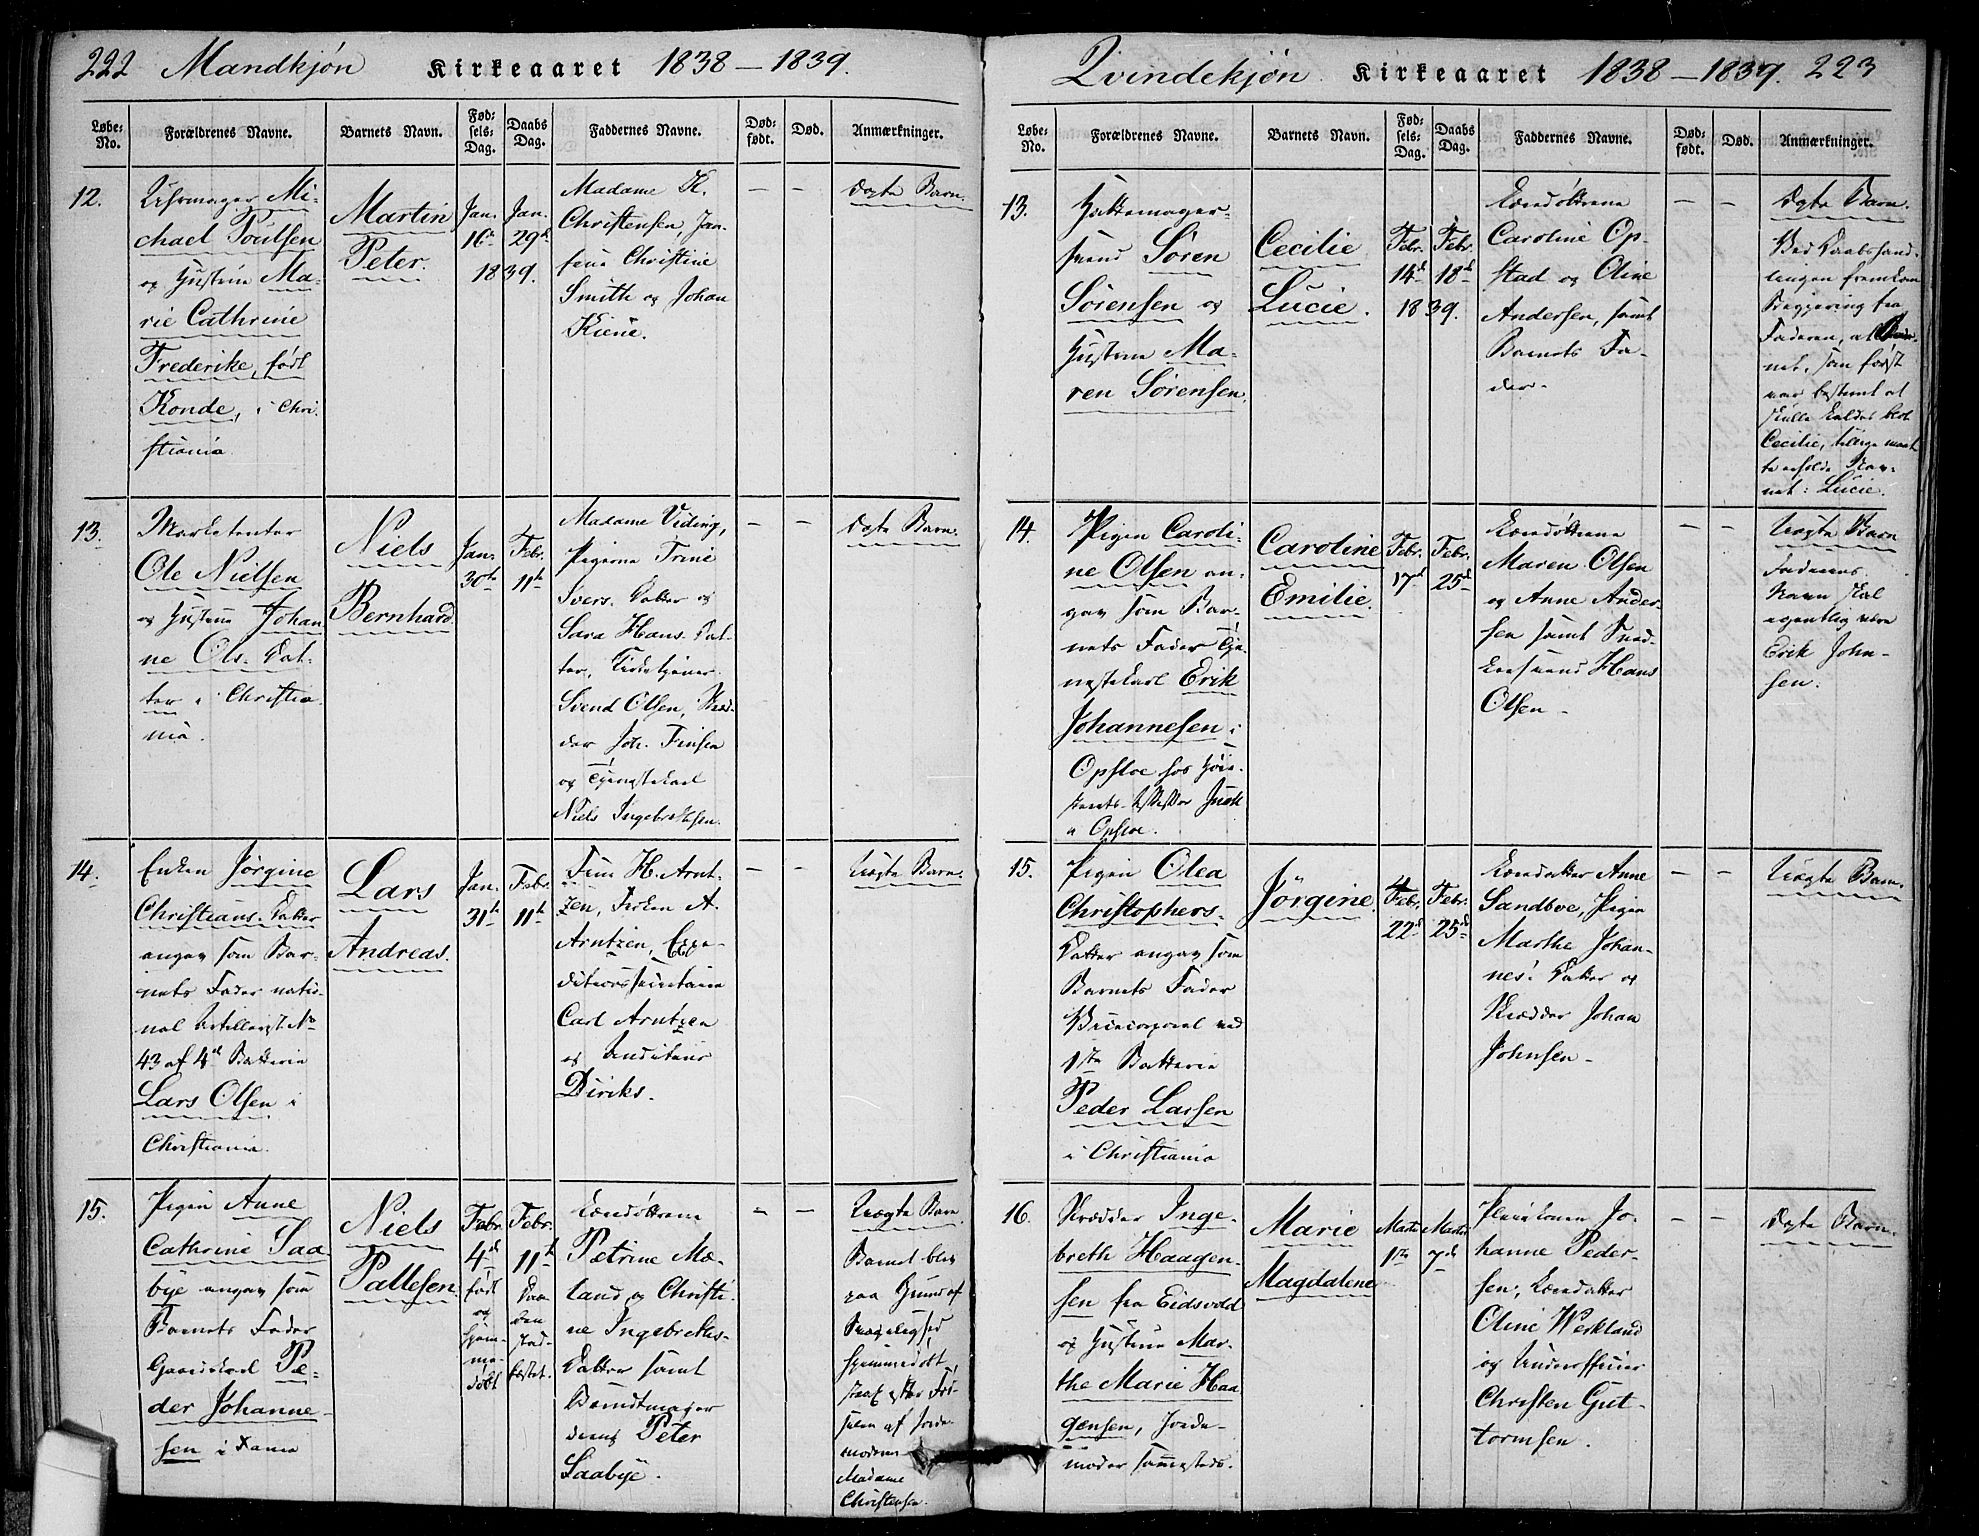 222 Mandkjøn Kirkeaaret 1838 – 1839.
Løbe-No. Forældrenes Navne. Barnets Navn. Fødsels-Dag. Daabs Dag. Faddernes Navne. Dødfødt. Død. Anmærkninger.
12.
Uhrmager Mi-
chael Poulsen
og Hustrue Ma-
rie Cathrine
Frederike, født
Konde, i Chri-
stiania.
Martin
Peter.
Jan. Jan.
16de 29de
1839.
Madame K.
Christensen, Jom-
frue Christine
Smith og Johan
Kiene.
– –
Ægte Barn.
13.
Marketenter
Ole Nielsen
og Hustrue Johan-
ne Ols. Dat-
ter i Christia-
nia.
Niels
Bernhard
Jan. Febr.
30te 11te
Madame Viding,
Pigerne Trine
Ivers. Datter og
Sara Hans. Dat-
ter,
Svend Olsen, Skræd-
der Joh. Finsen
og Tjenestekarl
Niels Ingebretsen.
– –
Ægte Barn.
14.
Enken Jørgine
Christians. Datter
angav som Bar-
nets Fader natio-
nal Artillerist No
43 af 4de Batterie
Lars Olsen i
Christiania.
Lars
Andreas.
Jan. Febr.
31te 11te
Frue H. Arnt-
zen, Frøken A.
Arntzen, Expe-
ditionssecretaire
Carl Arntzen
og Auditeur
Diriks.
– –
Uægte Barn.
15.
Pigen Anne
Cathrine Saa-
bye angav som
Barnets Fader
Gaardskarl Pe-
der Johanne-
sen i
Niels
Pallesen.
Febr. Febr.
4de 11te
født
og
hjem-
me-
døbt
Daa-
ben
stad-
fæstet.
Læredøttrene
Petrine Mæ-
land og Christi-
ne Ingebreths
Datter samt
Bundtmager
svend Peter
Saabye.
– –
Uægte Barn.
Barnet blev
paa Grund af
Svagelighed
hjemmedøbt
strax efter Fød-
selen af Jorde-
moderen
Madame
Christensen.
Qvindekjøn. Kirkeaaret 1838 – 1839. 223
Løbe-No. Forældrenes Navne. Barnets Navn. Fødsels-Dag. Daabs Dag. Faddernes Navne. Dødfødt. Død. Anmærkninger.
13.
Hattemager-
svend Søren
Sørensen og
Hustrue Ma-
ren Sørensen.
Cecilie
Lucie.
Febr. Febr.
14de 18de
1839.
Læredøttrene
Caroline Op-
stad og Oline
Andersen, samt
Barnets Fa-
der.
– –
Ægte Barn.
Ved Daabshand-
lingen fremkom
Begjering fra
Faderen, at Bar-
net, som først
var bestemt at
skulle kaldes blot
Cecilie, tillige maat-
te erholde Nav-
net: Lucie.
14.
Pigen Caroli-
ne Olsen an-
gav som Bar-
nets Fader Tje-
nestekarl Erik
Johannesen i
Opsloe hos
i Opsloe.
Caroline
Emilie.
Febr. Febr.
17de 25de
Læredøttrene
Maren Olsen
og Anne Ander-
sen samt Sned-
kersvend Hans
Olsen –
– –
Uægte Barn
Faderens
Navn skal
egentlig være
Erik John-
sen.
15.
Pigen Olea
Christophers-
Datter angav som
Barnets Fader
Vicecorporal ved
1ste Batterie
Peder Larsen
i Christiania
Jørgine.
Febr. Febr.
22de 25de
Læredatter Anne
Sandboe, Pigen
Marthe Johan-
nes. Datter og
Skrædder Johan
Johnsen –
– –
Uægte Barn.
16.
Skrædder Inge-
breth Haagen-
sen fra Eidsvold
og Hustrue Mar-
the Marie Haa-
gensen, Jorde-
moder sammesteds.
Marie
Magdalene
Marts Marts
1ste 7de
Pleiekonen Jo-
hanne Peder-
sen, Læredatter
Oline Werkland
og Underofficier
Christen Gut-
tormsen.
– –
Ægte Barn.